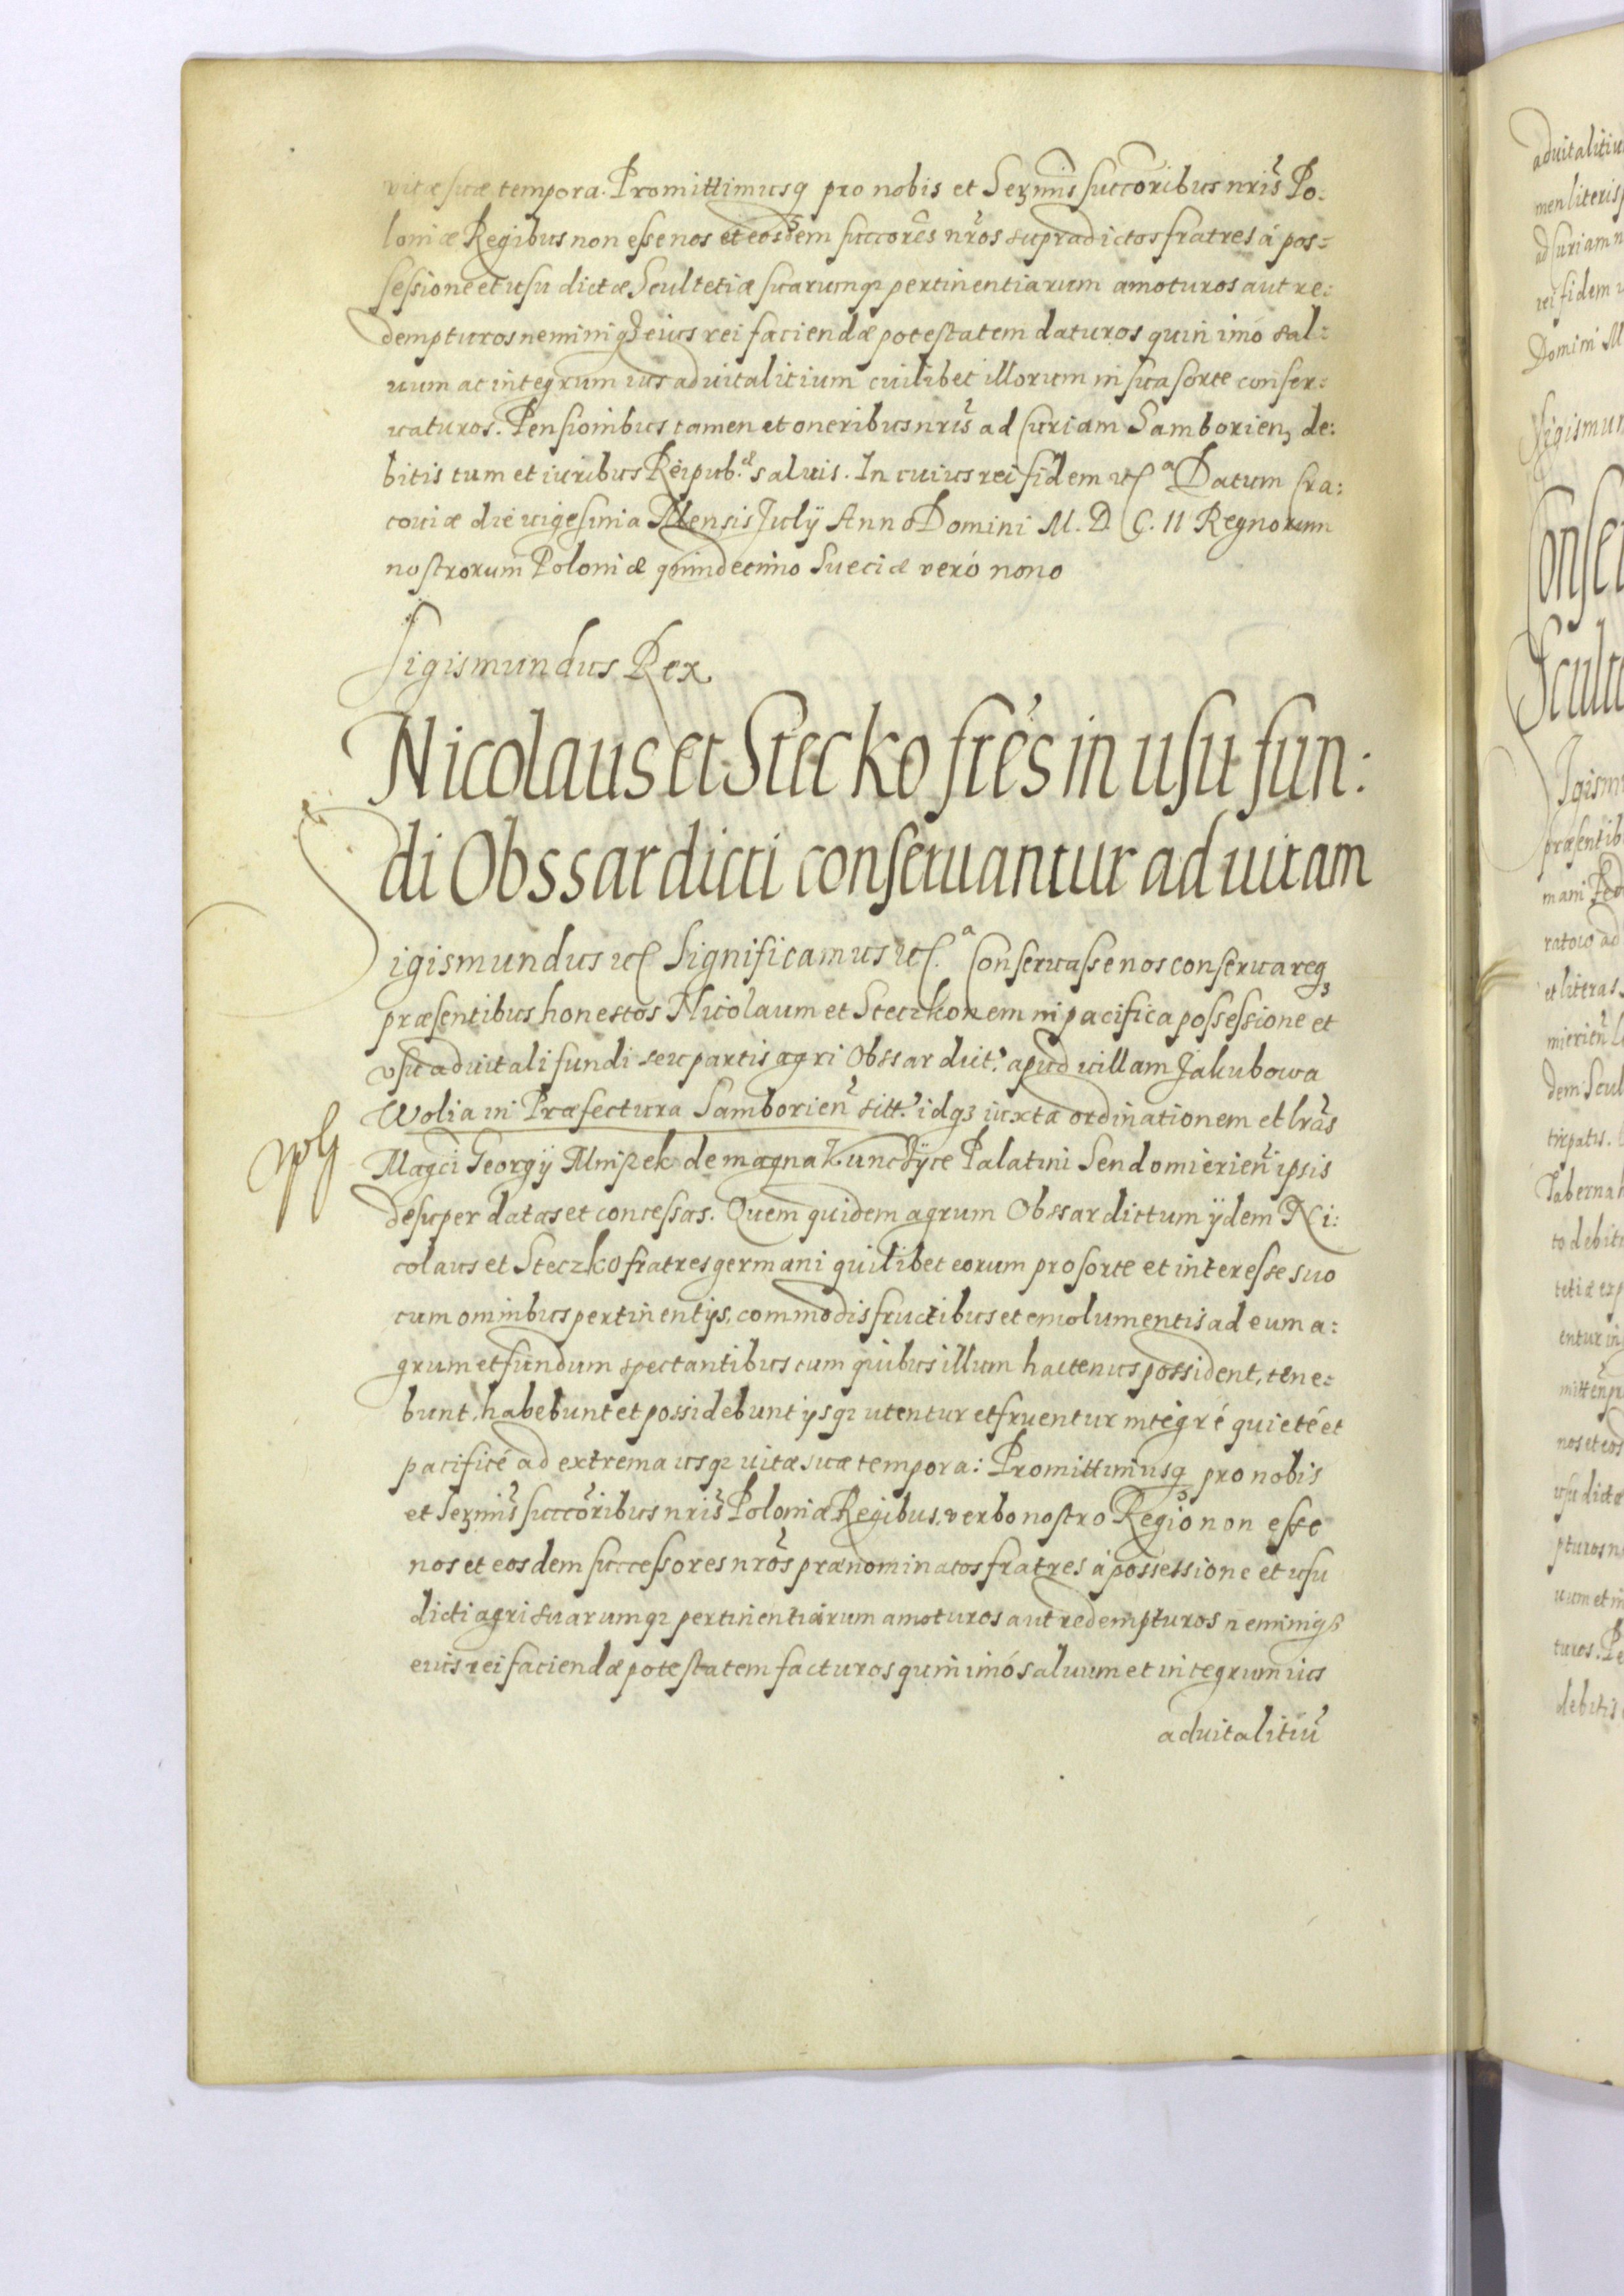 vitæ suæ tempora. Promittimusq pro nobis et Sermis succoribus nris Po:
loniæ Regibus non esse nos et eosdem succores nros supradictos fratres á pos=
sessione et usu dictæ Scultetiæ suarumq pertinentiarum amoturos aut re:
dempturos neminiq eius rei faciendæ potestatem daturos quin imó sal:
uum ac integrum ius aduitalitium cuilibet illorum in sua sorte conser:
uaturos. Pensionibus tamen et oneribus nris ad Curiam Samborien de:
bitis tum et iuribus Reipub. saluis. In cuius rei fidem etc Datum Cra:
couiæ die uigesima Mensis Julij Anno Domini M. D. C. II Regnorum
nostrorum Poloniæ quindecimo Sueciæ veró nono
Sigismundus Rex
Nicolaus et Stecko fres in usu fun:
di Obssar dicti conseruantur ad uitam
Sigismundus etc Significamus etc. Conseruasse nos conseruareq
præsentibus honestos Nicolaum et Steczkonem in pacifica possessione et
usu aduitali fundi seu partis agri Obssar dict. apud uillam Jakubowa
Wolia in Præfectura Samborien sitt. idq iuxta ordinationem et lras
Magci Georgij Mniszek de magna Kunczyce Palatini Sendomirien ipsis
desuper datas et concessas. Quem quidem agrum Obssar dictum ijdem Ni:
colaus et Steczko fratres germani quilibet eorum pro sorte et interesse suo
cum omnibus pertinentijs, commodis fructibus et emolumentis ad eum a:
grum et fundum spectantibus cum quibus illum hactenus possident, tene=
bunt, habebunt et possidebunt ijsq utentur et fruentur integré quieté et
pacificé ad extrema usq uitæ suæ tempora: Promittimusq pro nobis
et Sermis succoribus nris Poloniæ Regibus, verbo nostro Regio non esse
nos et eosdem successores nros prænominatos fratres á possessione et usu
dicti agri suarumq pertinentiarum amoturos aut redempturos neminiq
euis rei faciendæ potestatem facturos quin imó saluum et integrum ius
aduitalitiu